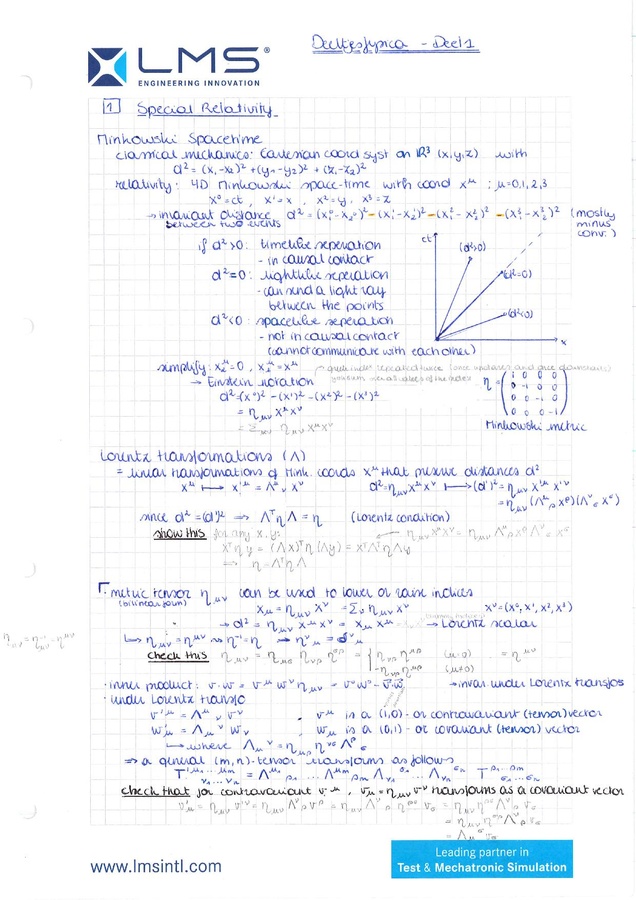 LMS®
ENGINEERING INNOVATION
Deeltjesfysica - Deel 1
1 Special Relativity
Minkowski Spacetime
classical mechanics: Cartesian coord syst on ℝ³ (x,y,z) with
d² = (x₁-x₂)² + (y₁-y₂)² + (z₁-z₂)²
relativity: 4D Minkowski space-time with coord x^μ ; μ=0,1,2,3
x⁰=ct , x¹=x , x²=y , x³=z
→ invariant distance d² = (x₁⁰-x₂⁰)² - (x₁¹-x₂¹)² - (x₁²-x₂²)² - (x₁³-x₂³)² (mostly minus conv.)
between two events
if d²>0: timelike seperation
- in causal contact
d²=0: lightlike seperation
- can send a light ray
between the points
d²<0: spacelike seperation
- not in causal contact
(cannot communicate with each other)
ct
(d²>0)
(d²=0)
(d²<0)
x
simplify: x₂^μ=0 , x₁^μ=x^μ
→ Einstein notation
d² = (x⁰)² - (x¹)² - (x²)² - (x³)²
= η_μν x^μ x^ν
= Σ_μν η_μν x^μ x^ν
η = (1 0 0 0
0 -1 0 0
0 0 -1 0
0 0 0 -1)
Minkowski metric
Lorentz transformations (Λ)
= linear transformations of Mink. coords x^μ that preserve distances d²
x^μ ⟼ x'^μ = Λ^μ_ν x^ν d² = η_μν x^μ x^ν ⟼ (d')² = η_μν x'^μ x'^ν
= η_μν (Λ^μ_ρ x^ρ)(Λ^ν_σ x^σ)
since d² = (d')² ⇒ Λ^T η Λ = η (Lorentz condition)
show this for any x, y: η_ρσ x^ρ x^σ = η_μν Λ^μ_ρ x^ρ Λ^ν_σ x^σ
x^T η y = (Λx)^T η (Λy) = x^T Λ^T η Λ y
⇒ η = Λ^T η Λ
· metric tensor η_μν can be used to lower or raise indices
(bilinear form)
x_μ = η_μν x^ν = Σ_ν η_μν x^ν x^ν = (x⁰, x¹, x², x³)
→ d² = η_μν x^μ x^ν = x_μ x^μ → Lorentz scalar
check this
(μ=0)
(μ≠0)
= η^μν
· inner product: v·w = v^μ w^ν η_μν = v⁰w⁰ - v⃗·w⃗ → invar. under Lorentz transfos
· under Lorentz transfo
v'^μ = Λ^μ_ν v^ν , v^μ is a (1,0)- or contravariant (tensor) vector
w'_μ = Λ_μ^ν w_ν , w_μ is a (0,1)- or covariant (tensor) vector
↳ where Λ_μ^ν = η_μρ η^νσ Λ^ρ_σ
⇒ a general (m,n)-tensor transforms as follows
T'^μ₁...μm_ν₁...νn = Λ^μ₁_ρ₁ ... Λ^μm_ρm Λ_ν₁^σ₁ ... Λ_νn^σn T^ρ₁...ρm_σ₁...σn
check that for contravariant v^μ , v_μ = η_μν v^ν transforms as a covariant vector
v'_μ = η_μν v'^ν = η_μν Λ^ν_ρ v^ρ = η_μν Λ^ν_ρ η^ρσ v_σ = η_μν η^ρσ Λ^ν_ρ v_σ
= Λ_μ^σ v_σ
www.lmsintl.com
Leading partner in
Test & Mechatronic Simulation